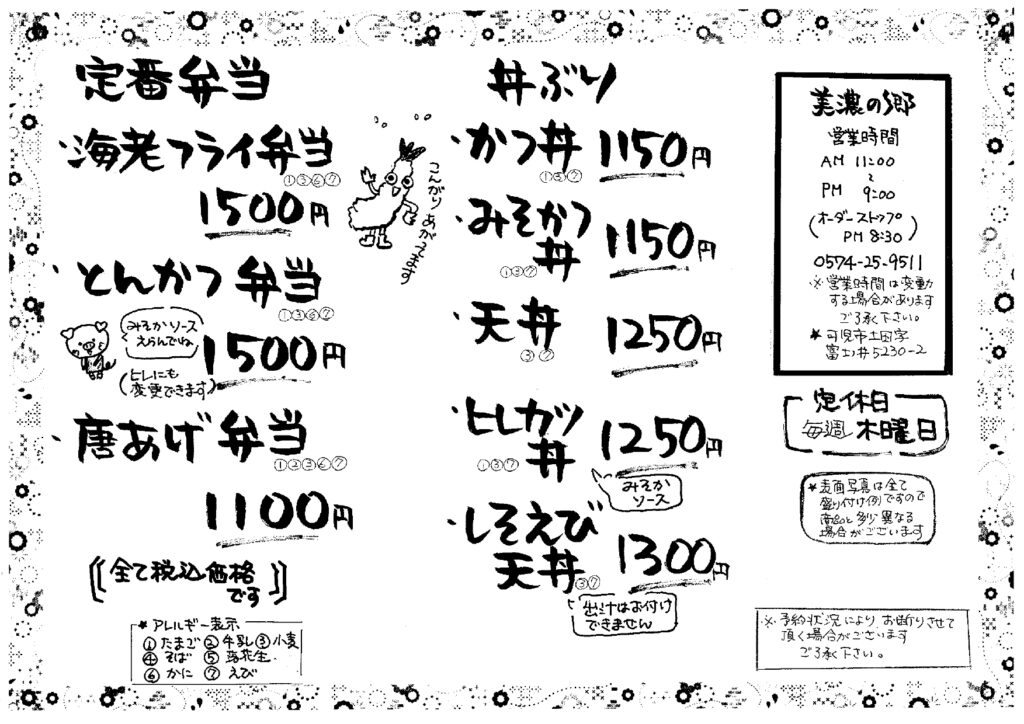 定番弁当
・海老フライ弁当
①③⑥⑦
1500円
こんがりあがってます
・とんかつ弁当
①③⑥⑦
みそかソース
えらんでね
(ヒレにも
変更できます)
1500円
・唐あげ弁当
①②③⑥⑦
1100円
全て税込価格
です
★アレルギー表示
①たまご ②牛乳 ③小麦
④そば ⑤落花生
⑥かに ⑦えび
丼ぶり
・かつ丼 1150円
①③⑦
・みそかつ
丼 1150円
①③⑦
・天丼 1250円
③⑦
・ヒレカツ
丼 1250円
①③⑦
みそか
ソース
・しそえび
天丼 1300円
③⑦
出汁はお付け
できません
美濃の郷
営業時間
AM 11:00
～
PM 9:00
(オーダーストップ
PM 8:30)
0574-25-9511
※営業時間は変動
する場合があります
ご了承下さい。
★可児市土田字
富士ノ井5230-2
定休日
毎週 木曜日
★表面写真は全て
盛り付け例ですので
商品と多少異なる
場合がございます
※予約状況により、お断りさせて
頂く場合がございます
ご了承下さい。